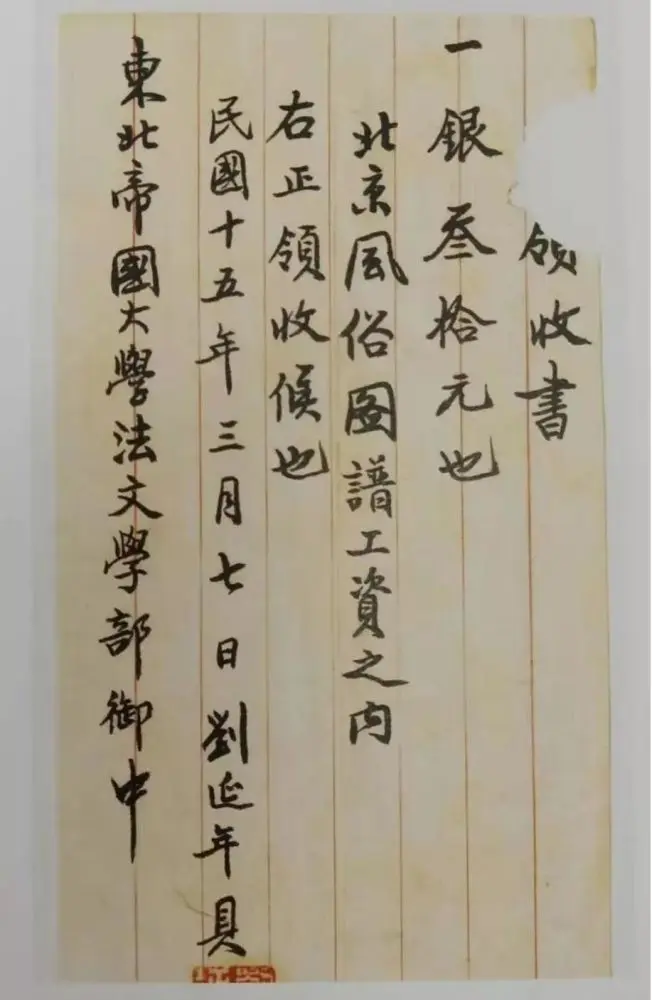 領収書
一銀叄拾元也
北京風俗圖譜工資之内
右正領收候也
民國十五年三月七日劉延年具
東北帝國大學法文學部御中